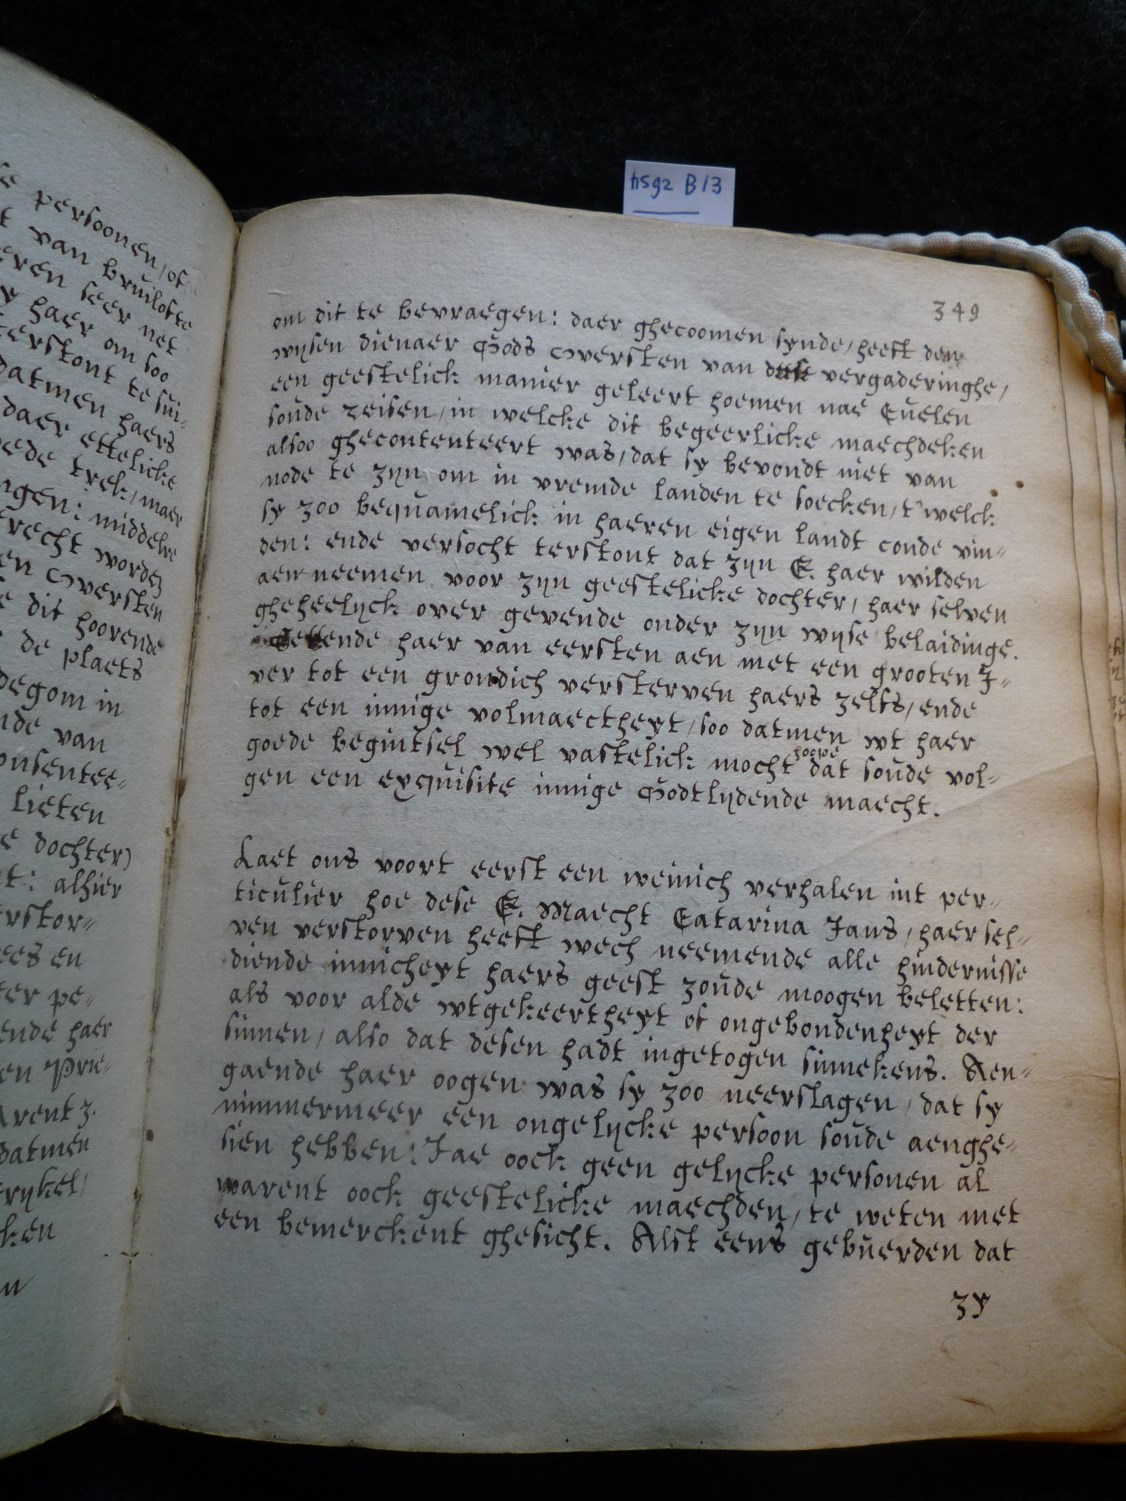 hsg2 B13
349
om dit te bevraegen: daer ghecoomen synde, heeft den
wijsen dienaer Gods Oversten van vergaderinghe,
een geestelick manier geleert hoemen nae Cuelen
soude reisen, in welcke dit begeerlicke maechdeken
alsoo ghecontenteert was, dat sy bevondt niet van
node te zijn om in vremde landen te soecken, t'welck
sy zoo bequamelick in haeren eigen landt conde vin-
den: ende versocht terstont dat zijn E. haer wilden
aen neemen voor zijn geestelicke dochter, haer selven
gheheelijck over gevende onder zijn wijse belaidinge.
Gevende haer van eersten aen met een grooten I-
ver tot een grondich versterven haers zelfs, ende
tot een innige volmaectheyt, soo datmen wt haer
goede begintsel wel vastelick mocht hoepe dat soude vol-
gen een exquisite innige Godtlijdende maecht.
Laet ons voort eerst een weinich verhalen int per-
ticulier hoe dese E. Maecht Catarina Jans, haer sel-
ven verstorven heeft wech neemende alle hindernisse
diende innicheyt haers geest zoude moogen beletten:
als voor alde wtgekeertheyt of ongebondenheyt der
sinnen, also dat desen hadt ingetogen sinnekens. Aen-
gaende haer oogen was sy zoo neerslagen, dat sy
nimmermeer een ongelijcke persoon soude aenghe-
sien hebben: Jae oock geen gelijcke personen al
warent oock geestelicke maechden, te weten met
een bemerckent ghesicht. Alst eens gebuerden dat
zy
persoonen, of
van bruilofte
seer net
haer om soo
terstont te sui-
datmen haers
daer ettelicke
trek, maer
middelre
worden
Oversten
dit hoorende
de plaets
degom in
van
lieten
dochter)
alhier
en
pe-
ende haer
en Prie-
datmen